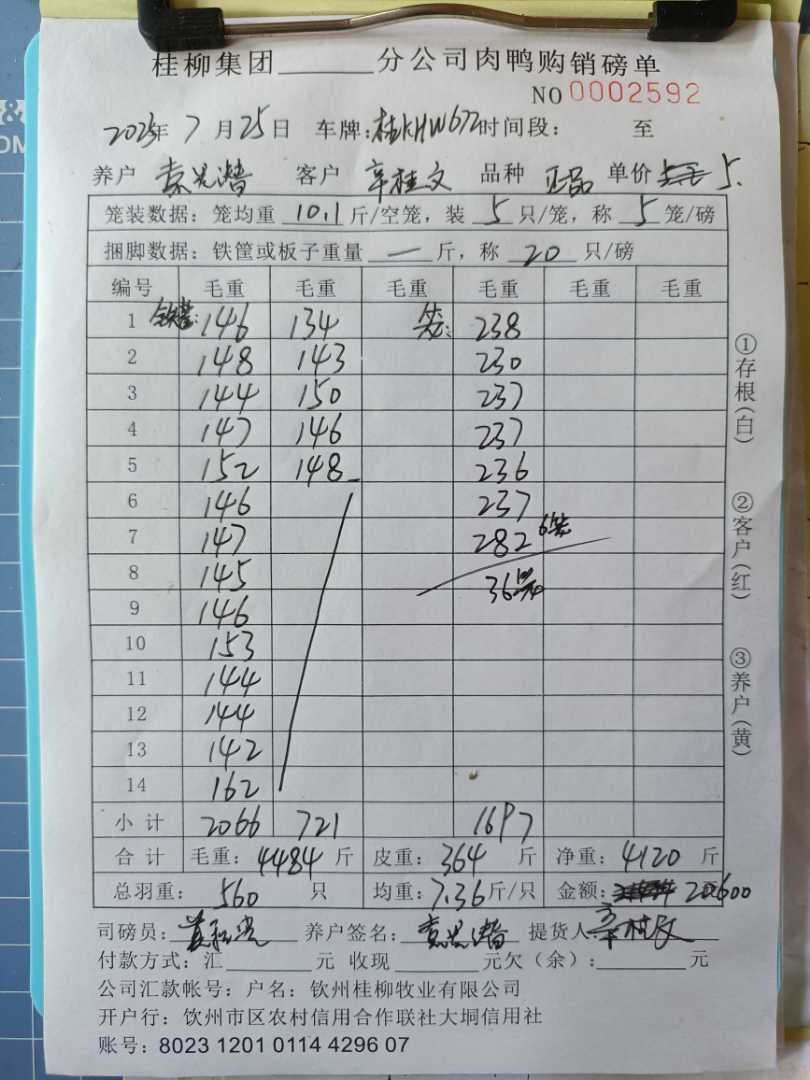 桂柳集团______分公司肉鸭购销磅单
NO 0002592
2025年 7 月 25 日 车牌: 桂KHW672 时间段: 至
养户 客户 辛桂文 品种 正品 单价 5.
笼装数据: 笼均重 10.1 斤/空笼, 装 5 只/笼, 称 5 笼/磅
捆脚数据: 铁筐或板子重量 — 斤, 称 20 只/磅
编号 毛重 毛重 毛重 毛重 毛重 毛重
1 铁筐: 146 134 笼: 238
2 148 143 230
3 144 150 237
4 147 146 237
5 152 148 236
6 146 237
7 147 282 6笼
8 145 36笼
9 146
10 153
11 144
12 144
13 142
14 162
小计 2066 721 1697
合计 毛重: 4484 斤 皮重: 364 斤 净重: 4120 斤
总羽重: 560 只 均重: 7.36 斤/只 金额: 20600
司磅员: 养户签名: 提货人: 辛桂文
付款方式: 汇______元 收现______元欠(余):______元
公司汇款帐号: 户名: 钦州桂柳牧业有限公司
开户行: 钦州市区农村信用合作联社大垌信用社
账号: 8023 1201 0114 4296 07
①存根(白)
②客户(红)
③养户(黄)